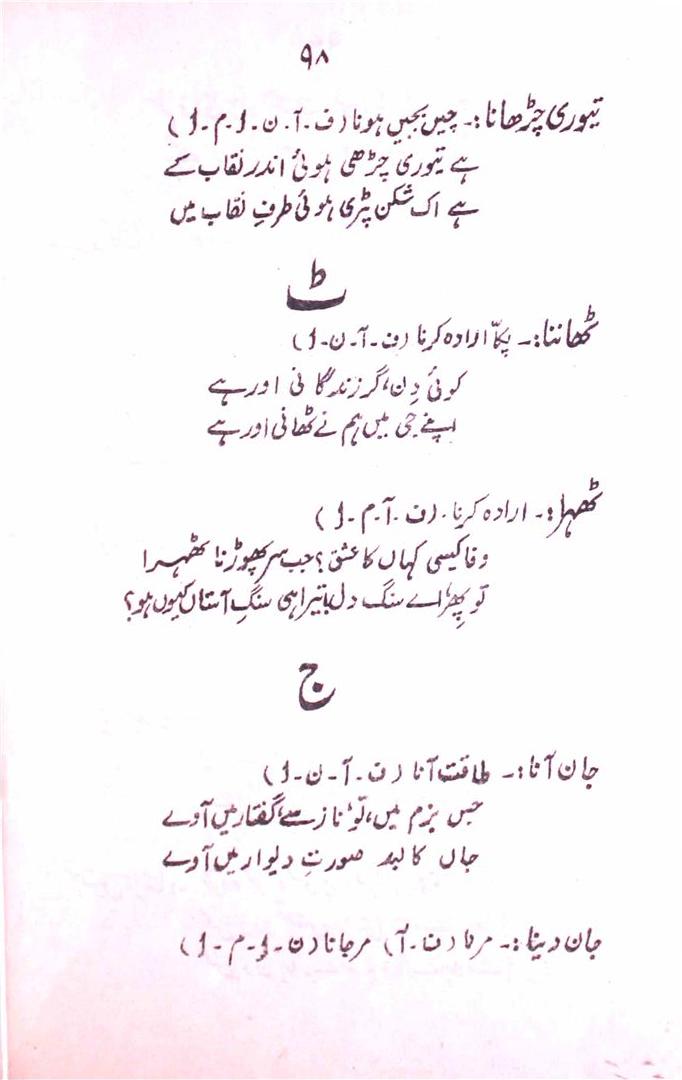 ۹۸
تیوری چڑھانا:۔ چیں بجبیں ہونا (ف۔آ۔ن۔ا۔م۔ا)
ہے تیوری چڑھی ہوئی اندر نقاب کے
ہے اک شکن پڑی ہوئی طرفِ نقاب میں
ٹ
ٹھاننا:۔ پکّا ارادہ کرنا (ف۔آ۔ن۔ا)
کوئی دِن، گر زندگانی اور ہے
اپنے جی میں ہم نے ٹھانی اور ہے
ٹھہرا:۔ ارادہ کرنا۔ (ف۔آ۔م۔ا)
وفا کیسی کہاں کا عشق؟ جب سر پھوڑنا ٹھہرا
تو پِھر، اے سنگ دل! تیرا ہی سنگِ آستاں کیوں ہو؟
ج
جان آنا:۔ طاقت آنا (ف۔آ۔ن۔ا)
جس بزم میں، تو، ناز سے، گفتار میں آوے
جاں کالبدِ صورتِ دیوار میں آوے
جان دینا:۔ مرنا (ف۔آ) مرجانا (ن۔ا۔م۔ا)